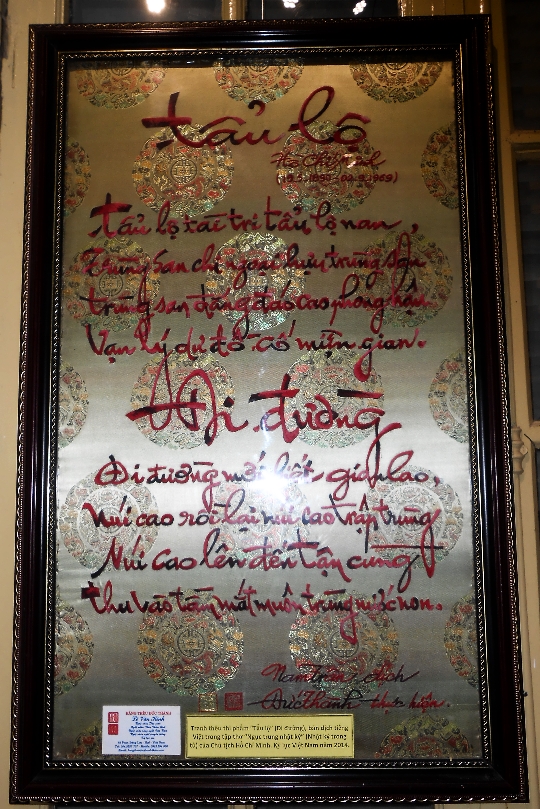 Tẩu lộ
Hồ Chí Minh
(19.5.1890 - 02.9.1969)
Tẩu lộ tài tri tẩu lộ nan,
Trùng san chi ngoại hựu trùng san
Trùng san đăng đáo cao phong hậu
Vạn lý dư đồ cố miện gian.
Đi đường
Đi đường mới biết gian lao,
Núi cao rồi lại núi cao trập trùng
Núi cao lên đến tận cùng
Thu vào tầm mắt muôn trùng nước non.
Nam Trân dịch
Đức Thành thực hiện.
Lê Văn Kinh
Tranh thêu thi phẩm "Tẩu lộ" (Đi đường), bản dịch tiếng
Việt trong tập thơ "Ngục trung nhật ký" (Nhật ký trong
tù) của Chủ tịch Hồ Chí Minh. Kỷ lục Việt Nam năm 2014.